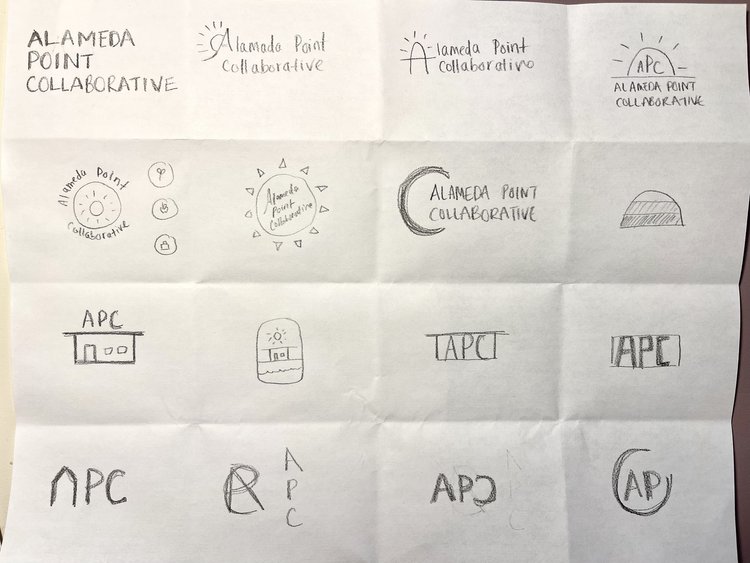 ALAMEDA
POINT
COLLABORATIVE
Alamada Point
Collaborative
Alameda Point
Collaborativo
APC
ALAMEDA POINT
COLLABORATIVE
Alameda Point
Collaborative
Alameda
Point
Collaborative
ALAMEDA POINT
COLLABORATIVE
APC
APC
APC
APC
A
P
C
APC
AP